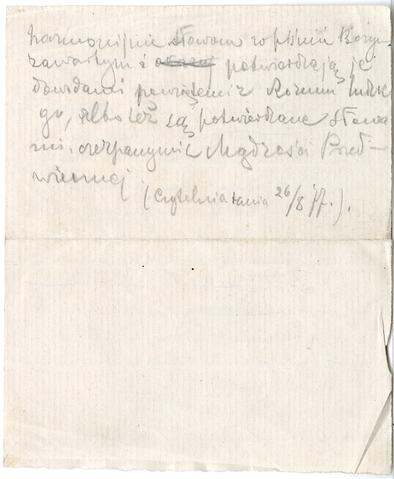 harmonijnie słowom w piśmie Bożym
zawartym i potwierdzają je
dowodami powziętemi z Rozumu ludzk
go, albo też są potwierdzane słowa
mi, czerpanymi z Mądrości Przed-
wiecznej
(Czytelnia tania 26/8 ).